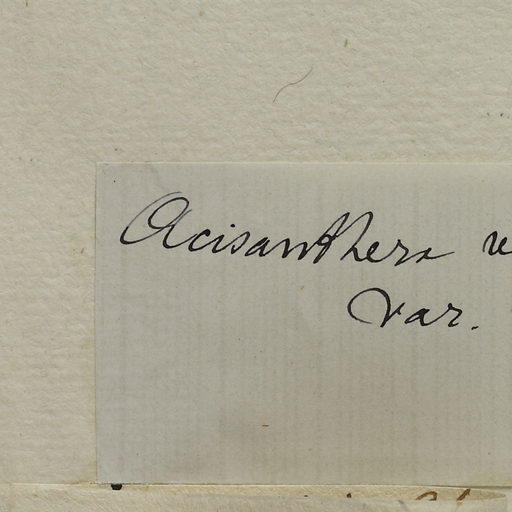 Acisanthera
var.